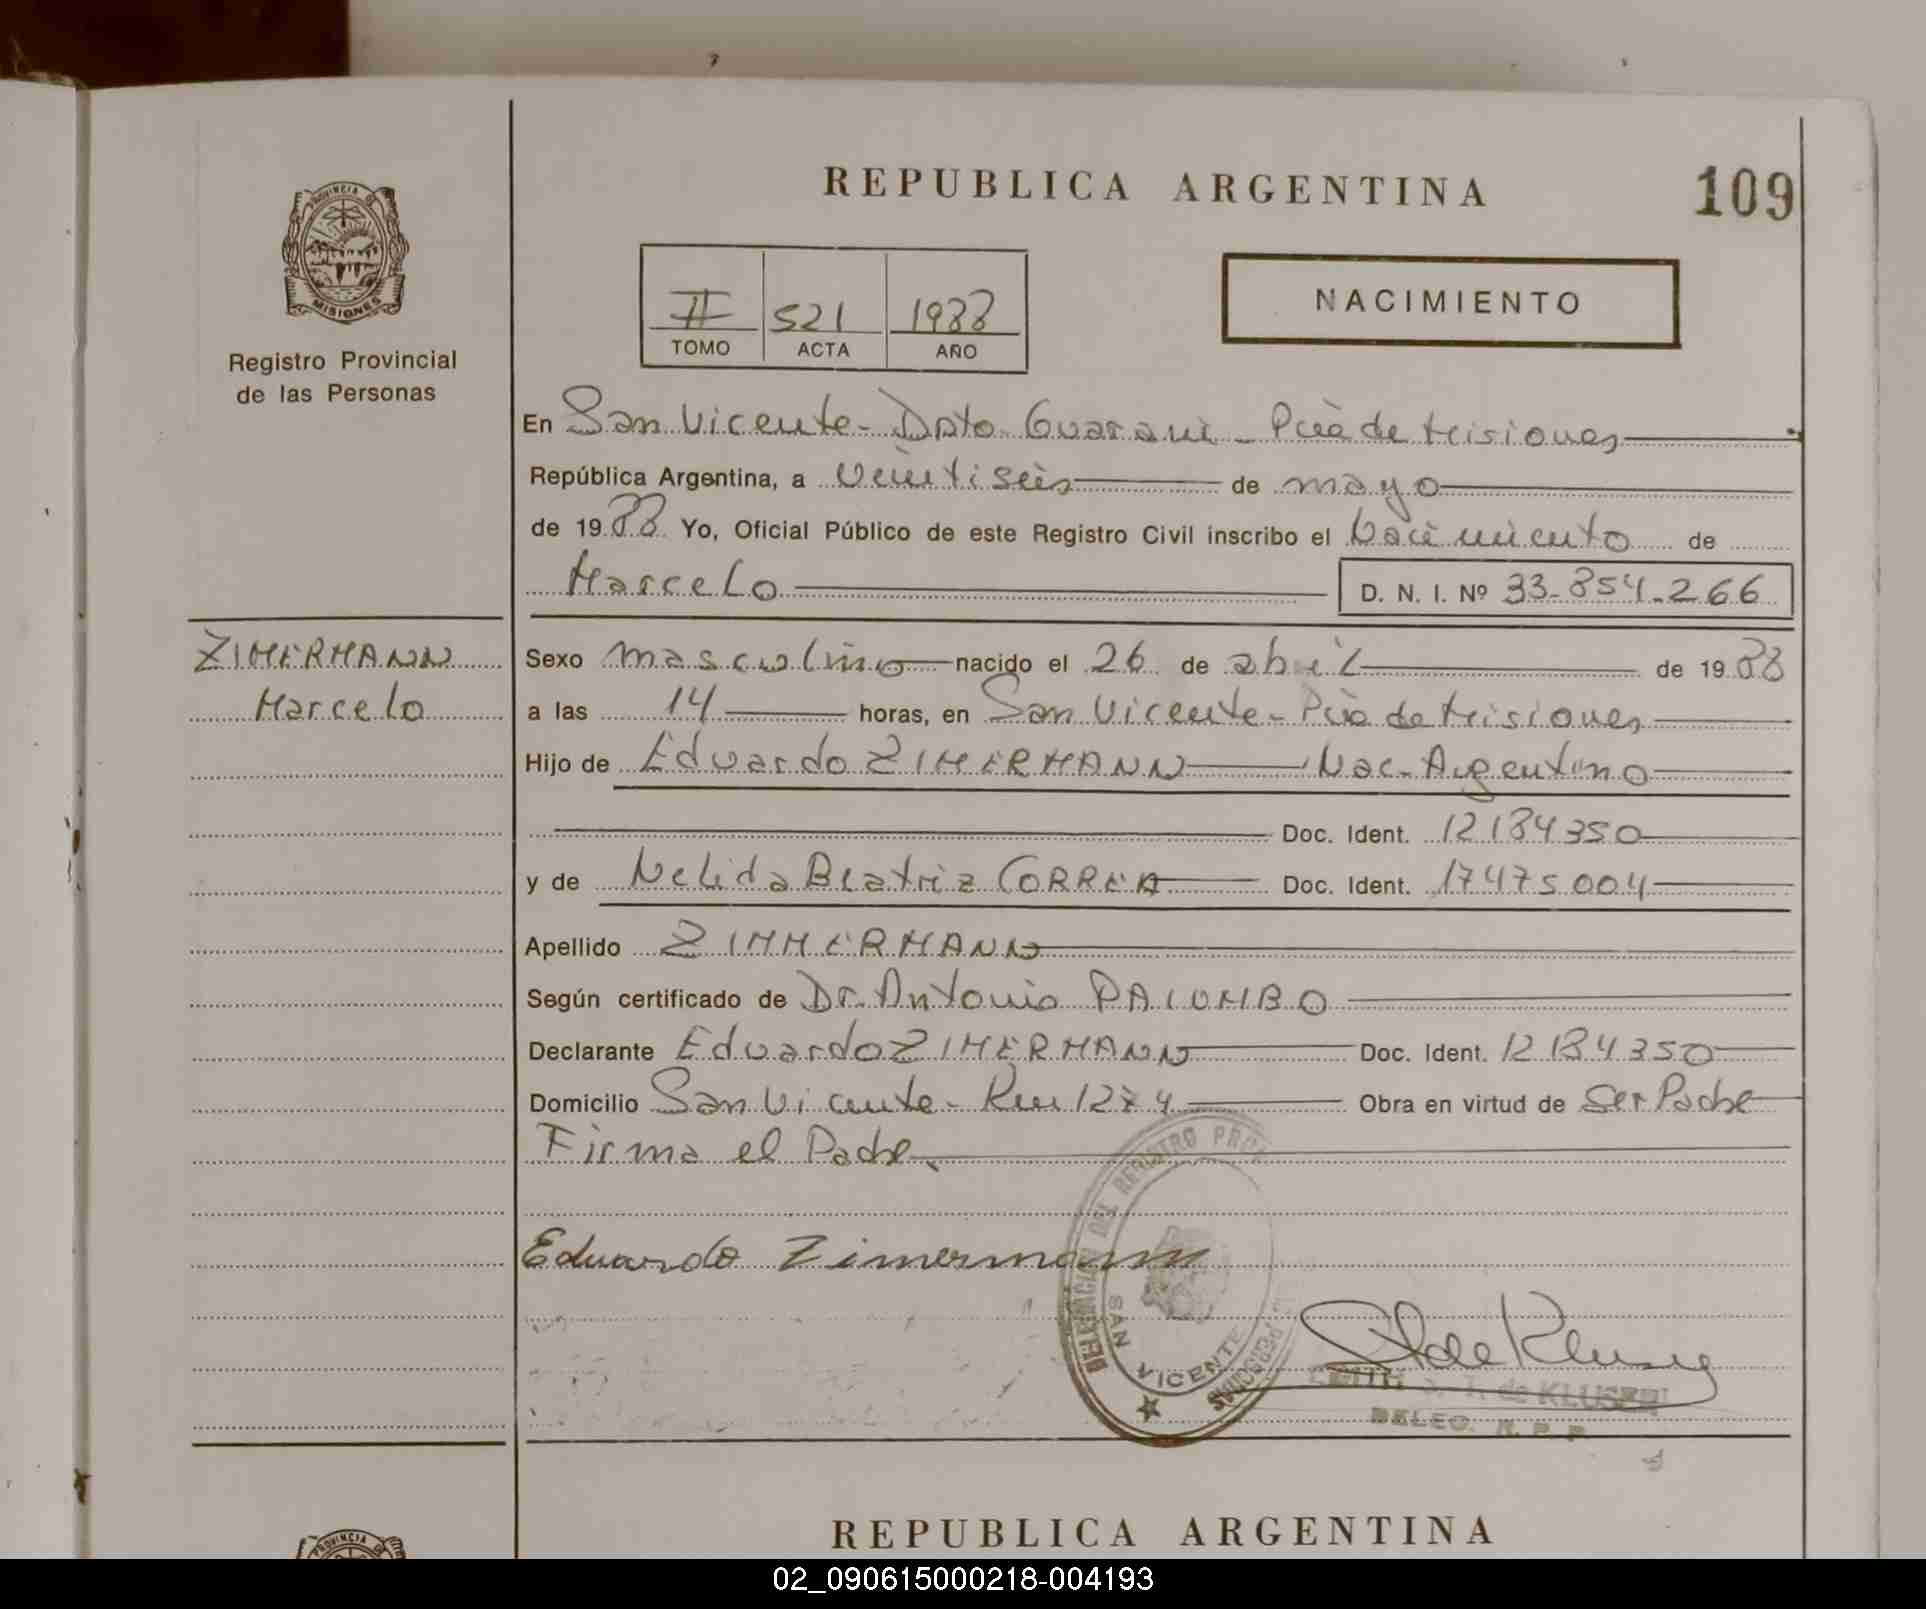 REPUBLICA ARGENTINA
109
PROVINCIA DE
MISIONES
Registro Provincial
de las Personas
II 521 1988
TOMO ACTA AÑO
NACIMIENTO
En San Vicente - Dpto Guarani - Pcia de Misiones
República Argentina, a veintiseis de mayo
de 1988 Yo, Oficial Público de este Registro Civil inscribo el Nacimiento de
Marcelo D. N. I. Nº 33.854.266
ZIMERMANN
Marcelo
Sexo masculino nacido el 26 de abril de 1988
a las 14 horas, en San Vicente - Pcia de Misiones
Hijo de Eduardo ZIMERMANN Nac. Argentino
Doc. Ident. 12184350
y de Nelida Beatriz CORREA Doc. Ident. 17475004
Apellido ZIMMERMANN
Según certificado de Dr. Antonio PALOMBO
Declarante Eduardo ZIMERMANN Doc. Ident. 12184350
Domicilio San Vicente - Km 1274 Obra en virtud de Ser Padre
Firma el Padre.
Eduardo Zimermann
DELEGACION DEL REGISTRO PROV
SAN VICENTE
MISIONES
de KLUSENER
DELEG. R. P. P.
REPUBLICA ARGENTINA
PROVINCIA DE
02_090615000218-004193